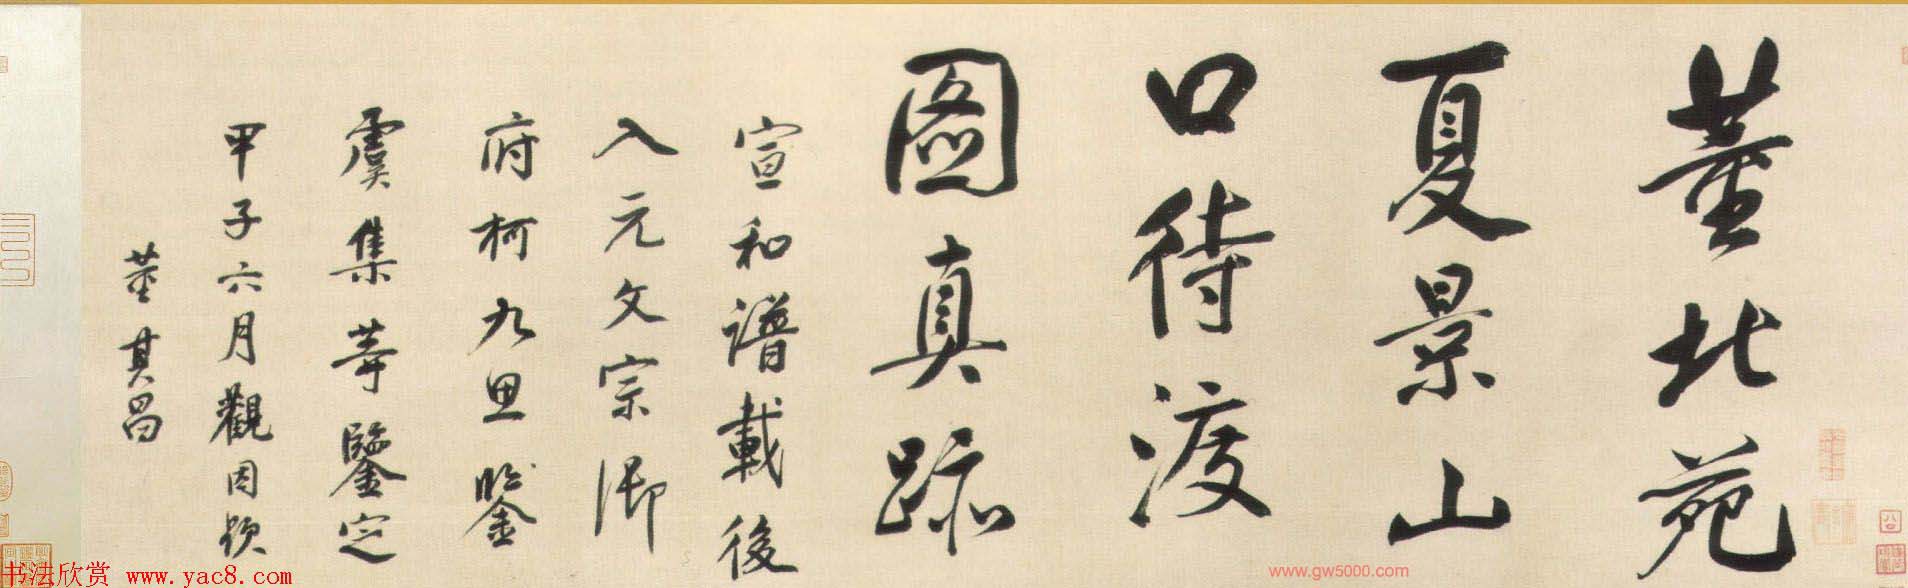 董北苑
夏景山
口待渡
圖真跡
宣和譜載後
入元文宗御
府柯九思鑒
虞集等鑒定
甲子六月觀因題
董其昌
书法欣赏 www.yac8.com
www.gw5000.com